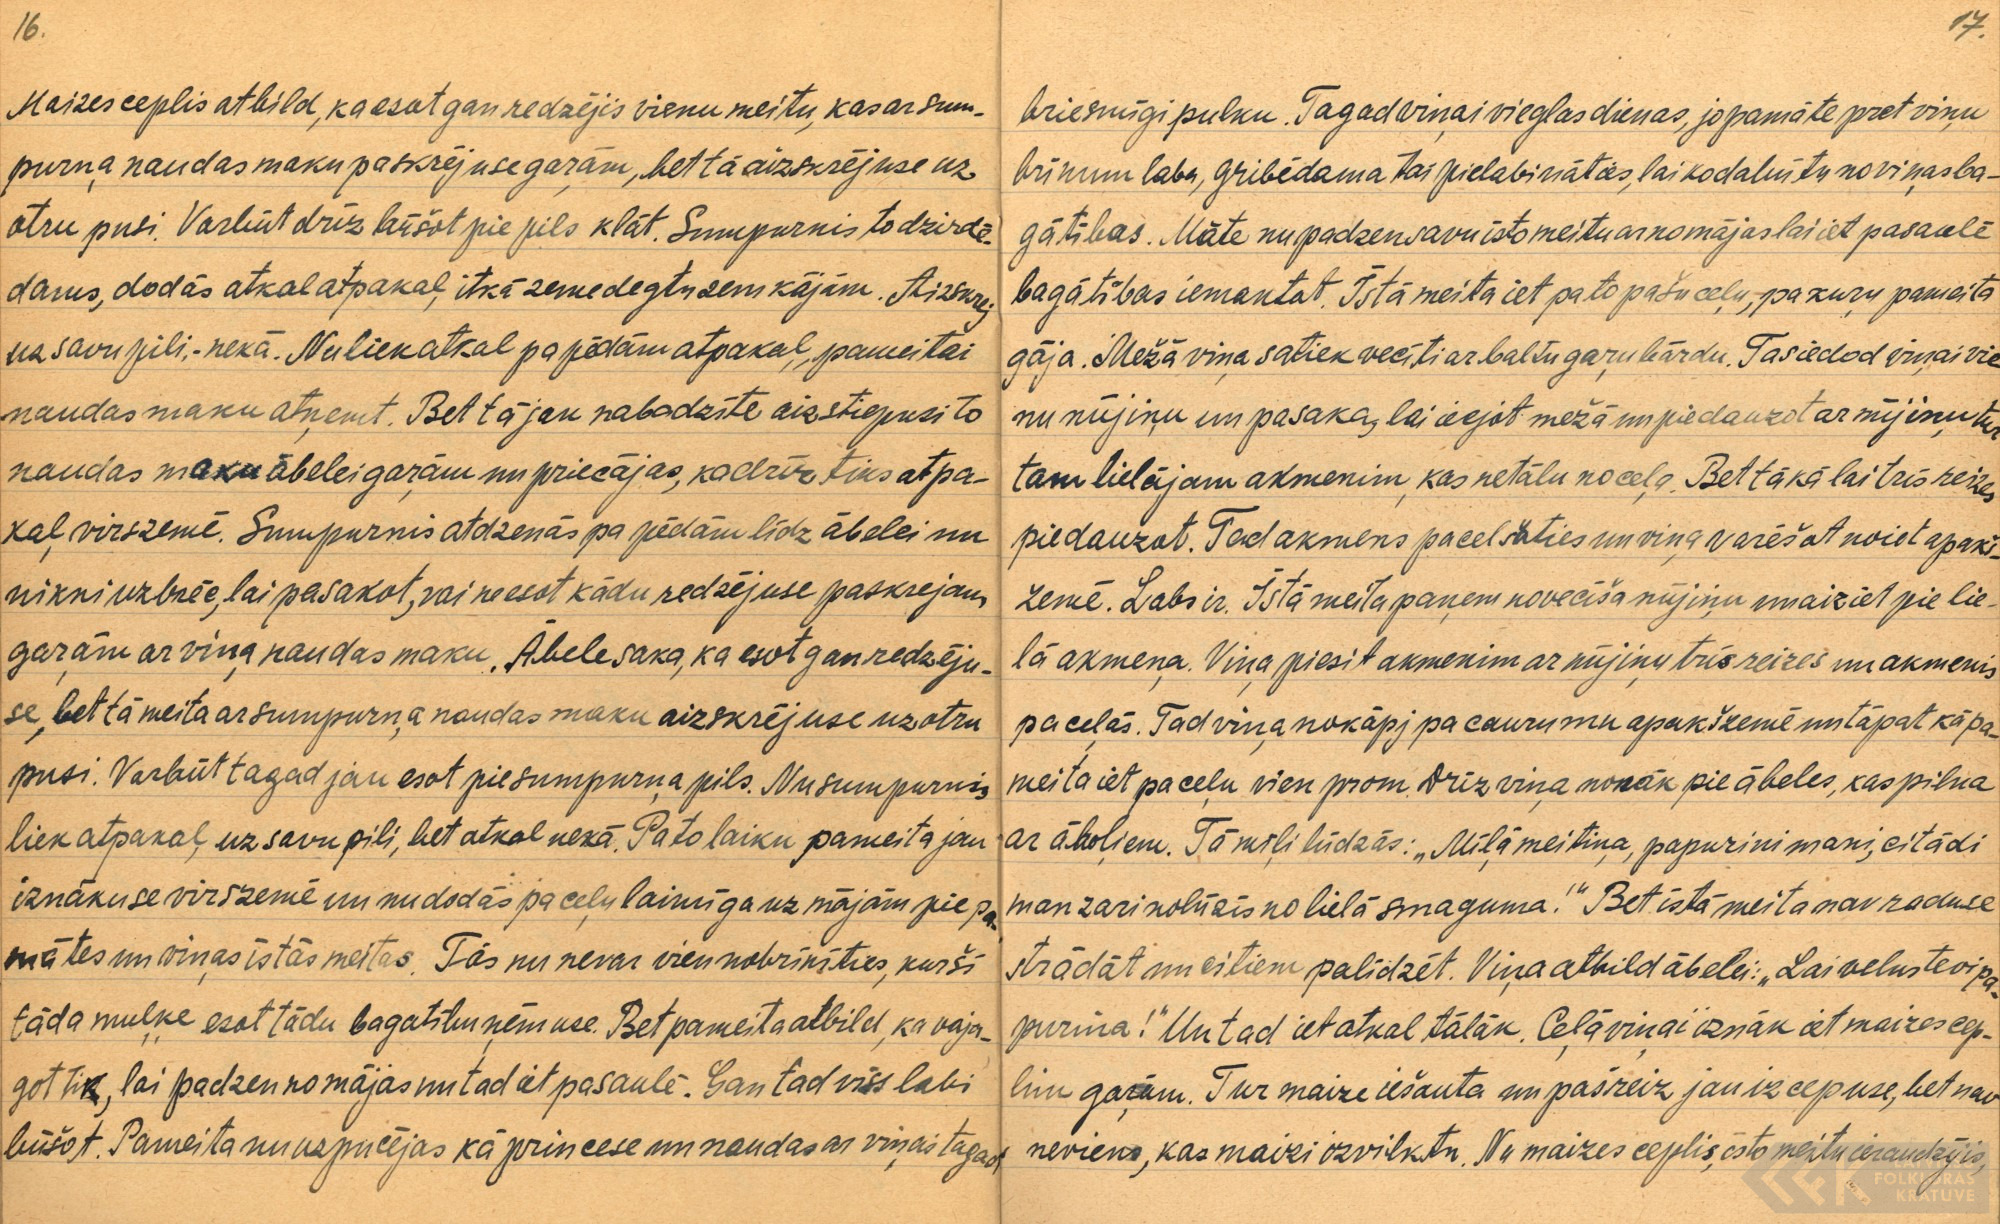 16.
Maizes ceplis atbild, ka esot gan redzējis vienu meitu, kas ar sum-
purņa naudas maku paskrējuse gaŗām, bet tā aizskrējuse uz
otru pusi. Varbūt drīz būšot pie pils klāt. Sumpurnis to dzirdē-
dams, dodās atkal atpakaļ, itkā zeme degtu zem kājām. Aizskrej
uz savu pili,- nekā. Nu liek atkal pa pēdām atpakaļ, pameitai
naudas maku atņemt. Bet tā jau nabadzīte aizstiepusi to
naudas maku ābelei gaŗām un priecājas, ka drīz tiks atpa-
kaļ virszemē. Sumpurnis atdzenās pa pēdām līdz ābelei un
nikni uzbrēc, lai pasakot, vai neesot kādu redzējuse paskrejam
gaŗām ar viņa naudas maku. Ābele saka, ka esot gan redzēju-
se, bet tā meita ar sumpurņa naudas maku aizskrējuse uz otru
pusi. Varbūt tagad jau esot pie sumpurņa pils. Nu sumpurnis
liek atpakaļ uz savu pili, bet atkal nekā. Pa to laiku pameita jau
iznākuse virszemē un nu dodās pa ceļu laimīga uz mājām pie pa-
mātes un viņas īstās meitas. Tās nu nevar vien nobrīnīties, kur šī
tāda muļķe esot tādu bagatību ņēmuse. Bet pameita atbild, ka vaja-
got tik, lai padzen no mājas un tad iet pasaulē. Gan tad viss labi
būšot. Pameita nu uzpucējas kā princese un naudas ar viņai tagad
17.
briesmīgi pulku. Tagad viņai vieglas dienas, jo pamāte pret viņu
brīnum laba, gribēdama tai pielabināties, lai ko dabūtu no viņas ba-
gātības. Māte nu padzen savu īsto meitu ar no mājas lai iet pasaulē
bagātības iemantot. Īstā meita iet pa to pašu ceļu, pa kuŗu pameita
gāja. Mežā viņa satiek vecīti ar baltu gaŗu bārdu. Tas iedod viņai vie
nu nūjiņu un pasaka, lai ieejot mežā un piedauzot ar nūjiņu tur
tam lielājam akmenim, kas netālu no ceļa. Bet tā kā lai trīs reizes
piedauzot. Tad akmens pacelšoties un viņa varēšot noiet apakš-
zemē. Labs ir. Īstā meita paņem no vecīša nūjiņu un aiziet pie lie-
lā akmeņa. Viņa piesit akmenim ar nūjiņu trīs reizes un akmenis
paceļās. Tad viņa nokāpj pa caurumu apakšzemē un tāpat kā pa-
meita iet pa ceļu vien prom. Drīz viņa nonāk pie ābeles, kas pilna
ar āboļiem. Tā mīļi lūdzās: „Mīļā meitiņa, papurini mani, citādi
man zari nolūzīs no lielā smaguma!" Bet īstā meita nav raduse
strādāt un citiem palīdzēt. Viņa atbild ābelei: „Lai velns tevi pa-
purina!" Un tad iet atkal tālāk. Ceļā viņai iznāk iet maizes cep-
lim gaŗām. Tur maize iešauta un pašreiz jau izcepuse, bet nav
neviena, kas maizi izvilktu. Nu maizes ceplis, īsto meitu ieraudzījis,
LATVIEŠU
FOLKLORAS
KRATUVE